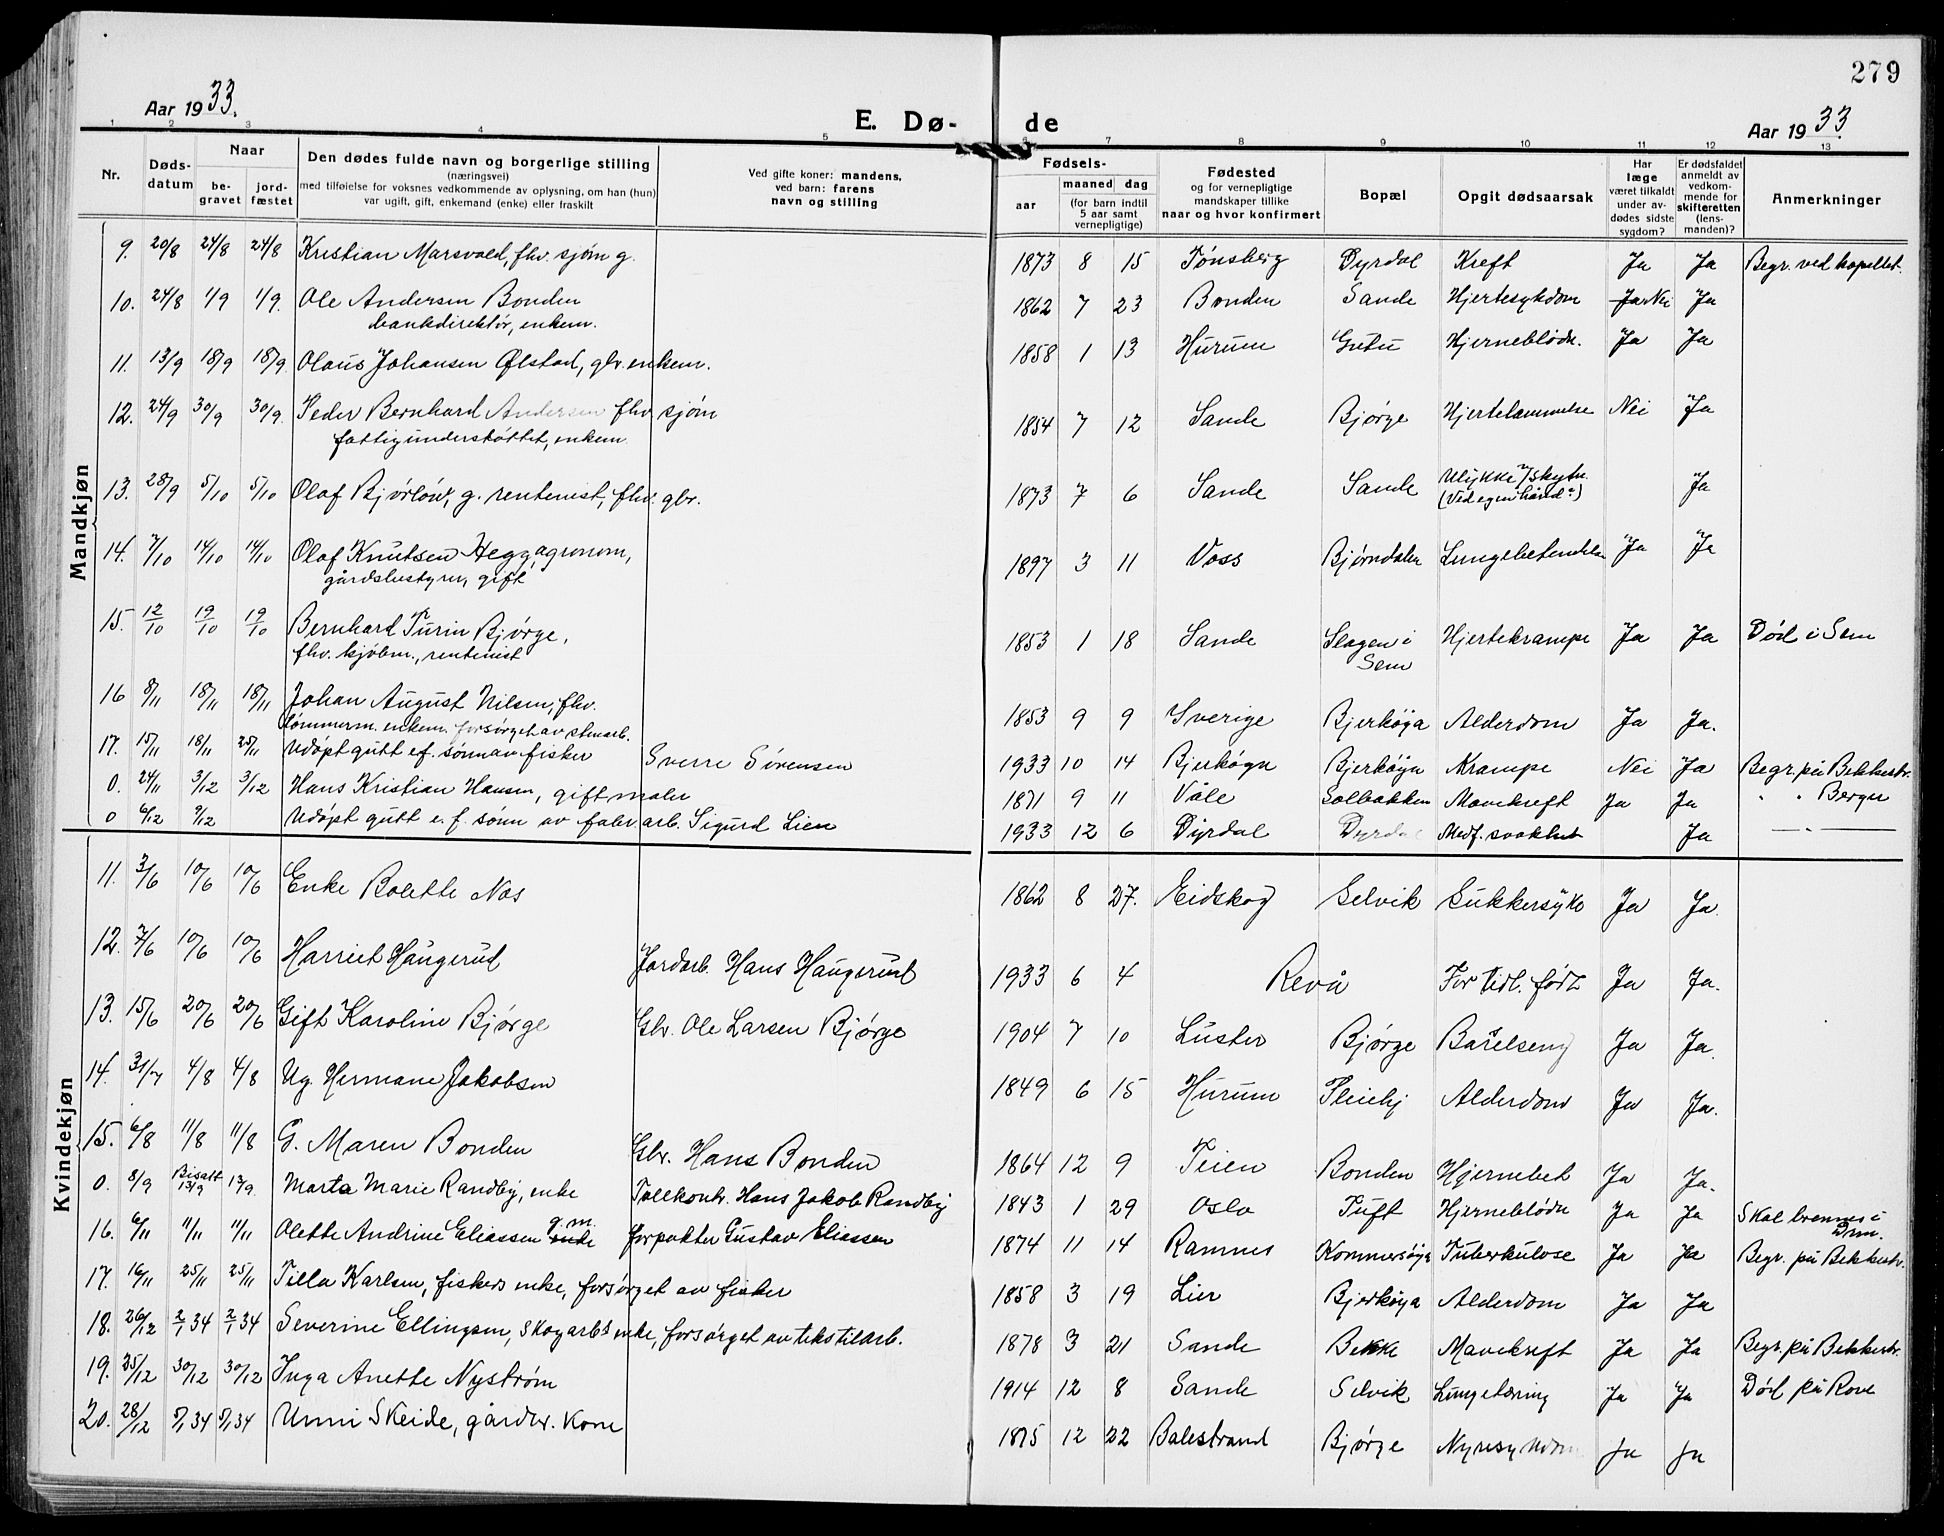 279
Aar 1933.
E. Dø- de
Aar 1933.
1 2 3 4 5 6 7 8 9 10 11 12 13
Nr.
Døds-
datum
Naar
be-
gravet
jord-
fæstet
Den dødes fulde navn og borgerlige stilling
(næringsvei)
med tilføielse for voksnes vedkommende av oplysning, om han (hun)
var ugift, gift, enkemand (enke) eller fraskilt
Ved gifte koner: mandens,
ved barn: farens
navn og stilling
Fødsels-
aar
maaned dag
(for barn indtil
5 aar samt
vernepligtige)
Fødested
og for vernepligtige
mandskaper tillike
naar og hvor konfirmert
Bopæl
Opgit dødsaarsak
Har
læge
været tilkaldt
under av-
dødes sidste
sygdom?
Er dødsfaldet
anmeldt av
vedkom-
mende for
skifteretten
(lens-
manden)?
Anmerkninger
Mandkjøn
9. 20/8 24/8 24/8 Kristian Marsvold, fhv. sjøm g. 1873 8 15 Tønsberg Dyrdal Kreft Ja Ja Begr. ved kapellet.
10. 24/8 1/9 1/9. Ole Andersen Bonden 1862 7 23 Bonden Sande Hjertesykdom Ja Nei Ja
bankdirektør, enkem.
11. 13/9 18/9 18/9. Olaus Johansen Ølstad, gbr. enkem. 1858 1 13 Hurum Gutu Hjerneblødn. Ja Ja
12. 24/9 30/9 30/9. Peder Bernhard Andersen fhv. sjøm 1854 7 12 Sande Bjørge Hjertelammelse Nei Ja
fattigunderstøttet, enkem.
13. 28/9 5/10 5/10 Olaf Bjørlöw, g. rentenist, fhv. gbr. 1873 7 6 Sande Sande Ulykke v/ skytn. Ja
(Ved egen hånd?)
14. 7/10 14/10 14/10 Olaf Knutsen Hegg, agronom, 1897 3 11 Voss Bjørndalen Lungebetendelse Ja Ja
gårdsbestyrer, gift
15. 12/10 19/10 19/10 Bernhard Turin Bjørge, 1853 1 18 Sande Slagen i Hjertekrampe Ja Ja Død i Sem
fhv. kjøbm., rentenist Sem
16 8/11 18/11 18/11 Johan August Nilsen, fhv. 1853 9 9 Sverige Bjerkøya Alderdom Ja Ja.
tømmerm. enkem. forsørget av stenarb.
17. 15/11 18/11 25/11 Udøpt gutt e.f. sønn av fisker Sverre Sørensen 1933 10 14 Bjerkøya Bjerkøya Krampe Nei Ja Begr. på Bekkestr.
0. 24/11 3/12 3/12 Hans Kristian Hansen, gift maler 1871 9 11 Våle Solbakken Mavekreft Ja Ja " " Berger
0 6/12 9/12 Udøpt gutt e. f. sønn av fabr. arb. Sigurd Lien 1933 12 6 Dyrdal Dyrdal Medf. svakhet Ja — " —
Kvindekjøn
11. 3/6 10/6 10/6 Enke Bolette Nos 1862 8 27. Eidskog Selvik Sukkersyke Ja Ja.
12. 7/6 10/6 10/6 Harriet Haugerud Jordarb. Hans Haugerud 1933 6 4 Revå For tidl. født Ja Ja.
13. 15/6 20/6 20/6 Gift Karoline Bjørge Gbr. Ole Larsen Bjørge 1904 7 10 Luster Bjørge Barselseng Ja Ja.
14. 31/7 4/8 4/8 Ug. Hermane Jakobsen 1849 6 15 Hurum Pleiehj Alderdom Ja Ja.
15. 6/8 11/8 11/8 G. Maren Bonden Gbr. Hans Bonden 1864 12 9 Teien Bonden Hjernebet Ja Ja.
0. 8/9 Bisatt 13/9 13/9. Marta Marie Randby, enke Tollkontr. Hans Jakob Randby 1843 1 29 Oslo Tuft Hjerneblødn Ja Ja Skal brennes i
Drm.
16. 6/11 11/11 11/11 Olette Andrine Eliassen enke g.m. forpakter Gustav Eliassen 1874 11 14 Ramnes Kommersøya Tuberkulose Ja Ja Begr. på Bekkestr.
17. 16/11 25/11 25/11 Tilla Karlsen, fiskers enke, forsørget av fisker 1858 3 19 Lier Bjerkøya Alderdom Ja Ja
18. 26/12 2/1 34 2/1 34 Severine Ellingsen, skogarb.s enke, forsørget av tekstilarb. 1878 3 21 Sande Bekke Mavekreft Ja Ja Begr. på Bekkestr.
19. 25/12 30/12 30/12 Inga Anette Nystrøm 1914 12 8 Sande Selvik Lungetæring Ja Ja Død på Rove
20. 28/12 5/1 34 5/1 34 Unni Skeide, gårdbr. kone 1875 12 22 Balestrand Bjørge Nyresykdom Ja Ja